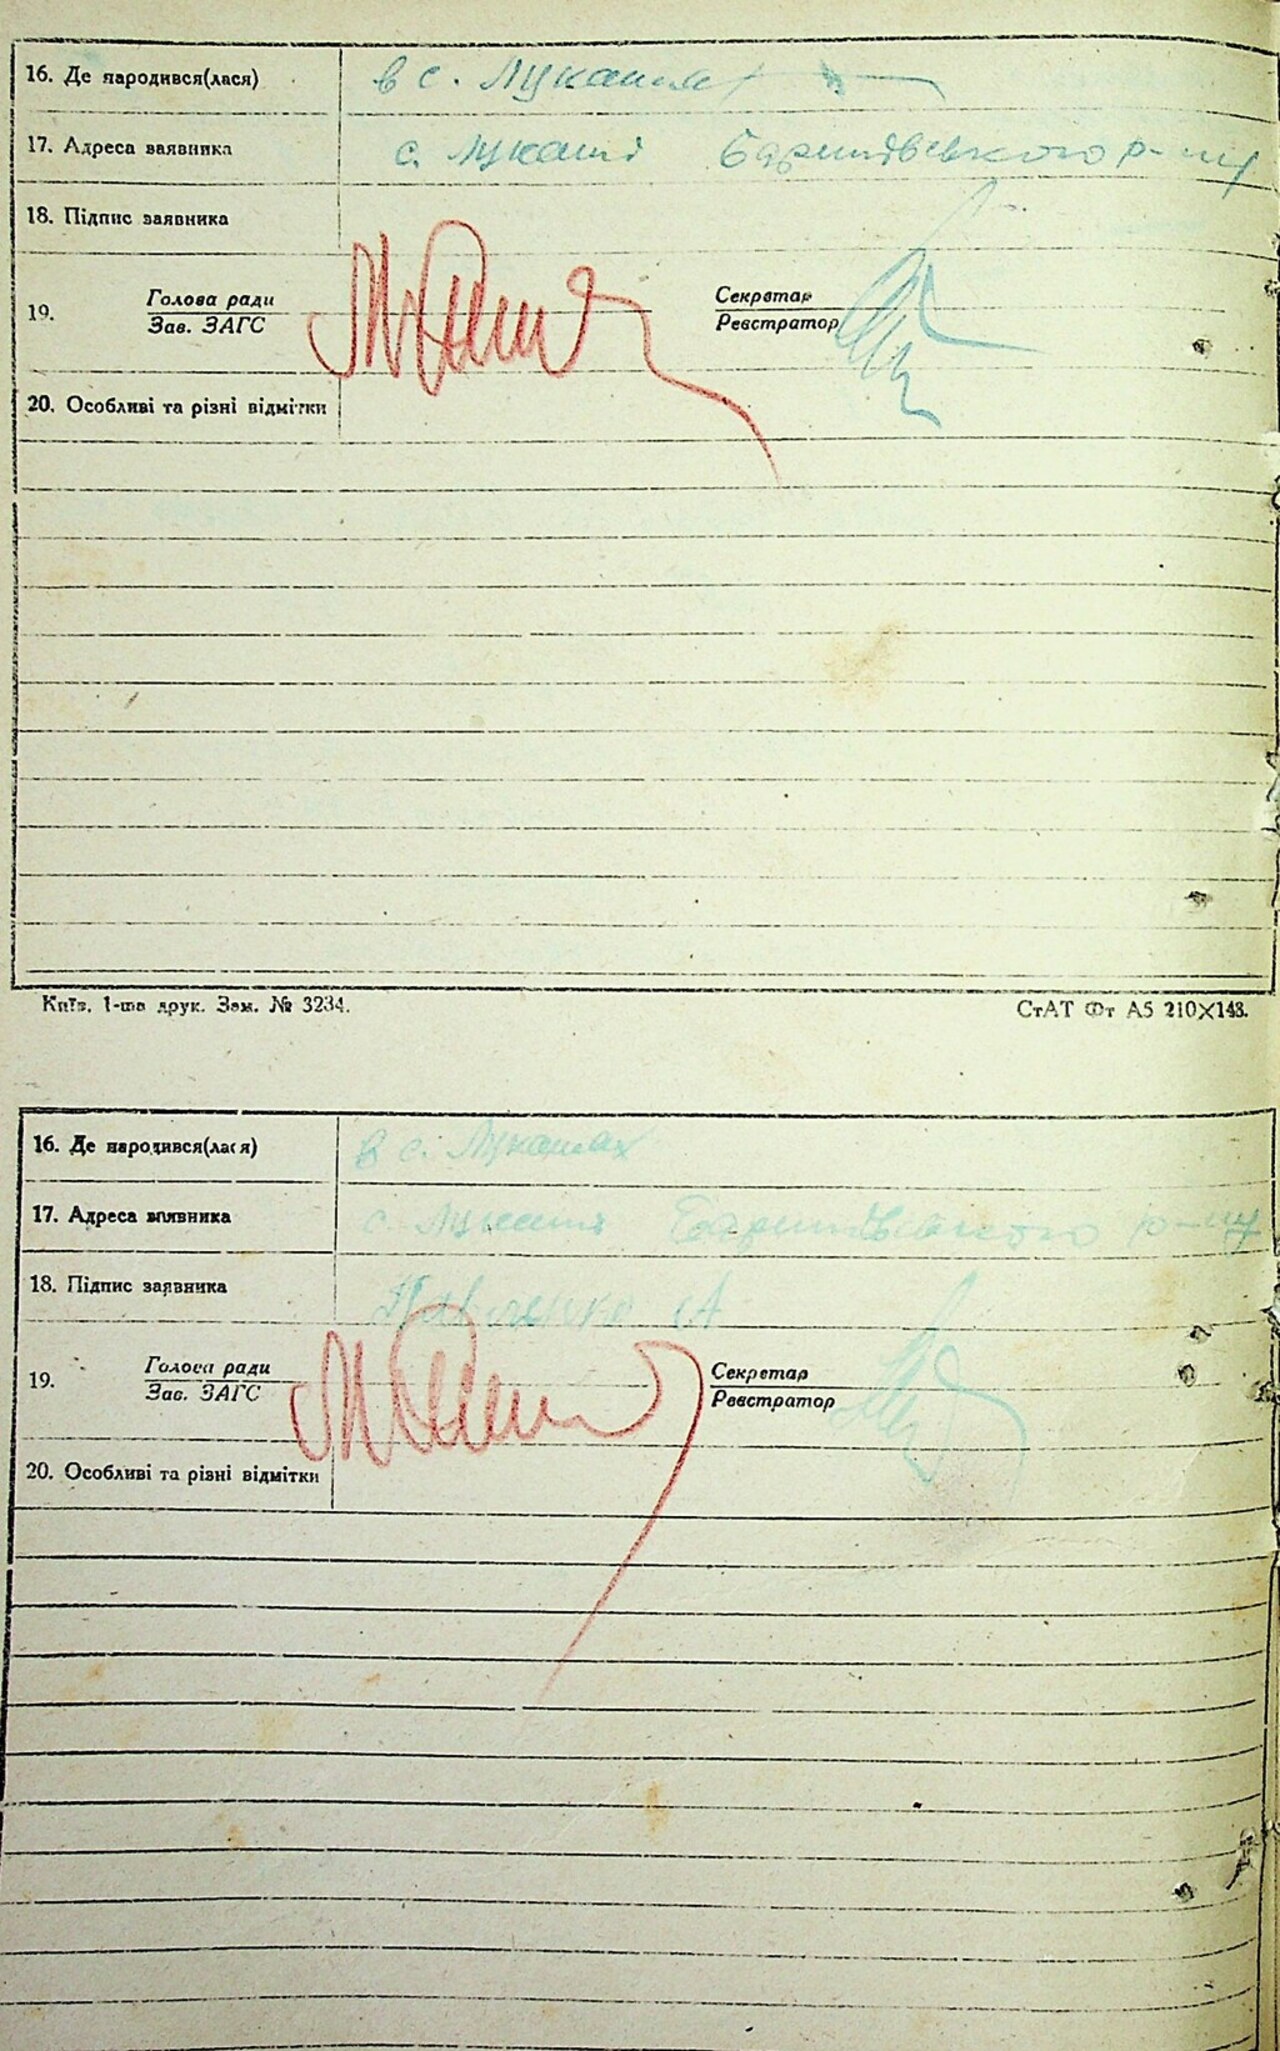 16. Де народився(лася) в с. Лукашах
17. Адреса заявника с. Лукаші Баришівського р-ну
18. Підпис заявника
19. Голова ради Секретар
Зав. ЗАГС Реєстратор
20. Особливі та різні відмітки
Київ, 1-ша друк. Зам. № 3234. СтАТ Фт А5 210×148.
16. Де народився(лася) в с. Лукашах
17. Адреса заявника с. Лукаші Баришівського р-ну
18. Підпис заявника Павленко
19. Голова ради Секретар
Зав. ЗАГС Реєстратор
20. Особливі та різні відмітки